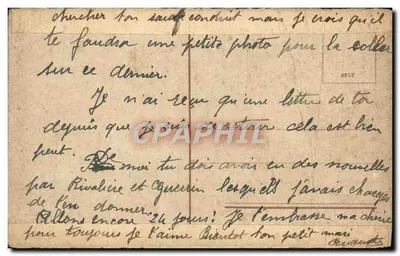 chercher ton sauf conduit mais je crois qu'il
te faudra une petite photo pour la coller
sur ce dernier.
Je n'ai reçu qu'une lettre de toi
depuis que je suis cela est bien
peu. De moi tu dois avoir eu des nouvelles
par Rivalière et lesquels j'avais chargés
de t'en donner.
Allons encore 24 jours! Je t'embrasse ma chérie
pour toujours je t'aime Bientôt ton petit mari
CPHAPHIL